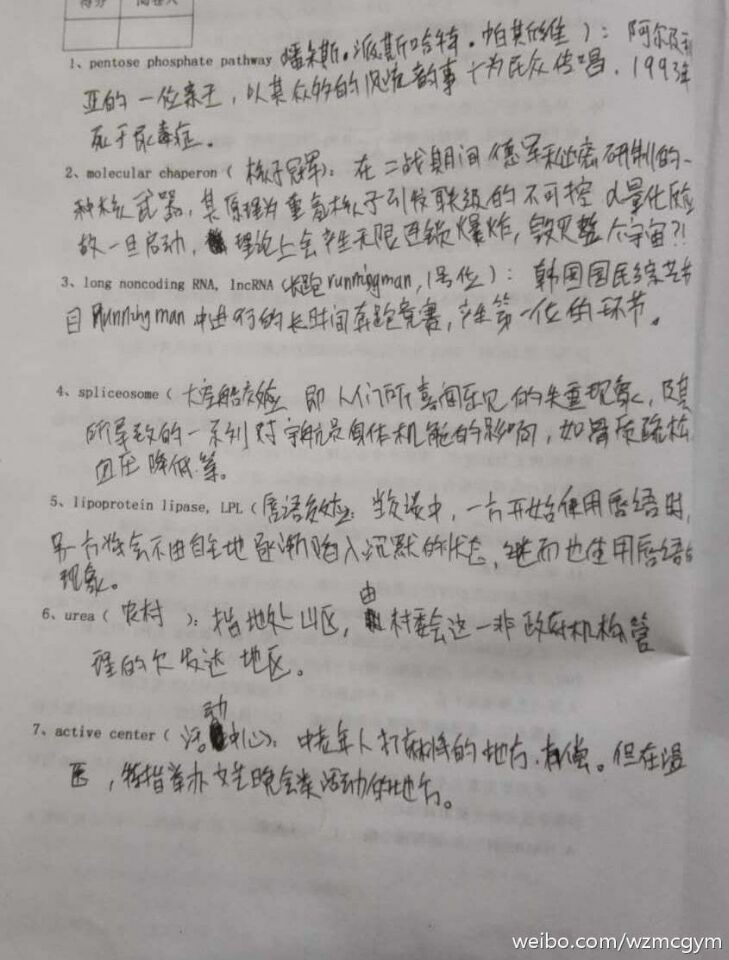 得分 阅卷人
1、pentose phosphate pathway 潘朵斯。派斯哈特。帕斯维 )：阿尔及利
亚的一位亲王，以其众多的风流韵事 十为民众传唱．1993年
死于尿毒症。
2、molecular chaperon ( 核子冠军)：在二战期间德军秘密研制的一
种核武器，其原理为重核子引发联级的不可控 量化
故一旦启动，理论上会产生无限连锁爆炸，毁灭整个宇宙？！
3、long noncoding RNA, lncRNA (长跑runningman, 1号位)：韩国国民综艺节
目Running man 中进行的长时间奔跑竞赛，产生第一位的环节。
4、spliceosome ( 太空船效应 即人们所喜闻乐见的失重现象，及其
所导致的一系列对宇航员身体机能的影响，如骨质疏松
血压降低等。
5、lipoprotein lipase, LPL (唇语效应：当交谈中，一方开始使用唇语时，
另一方将会不由自主地逐渐陷入沉默的状态，继而也使用唇语的
现象。
6、urea ( 农村 )：指地处山区，由村委会这一非政府机构管
理的欠发达地区。
7、active center ( 活动中心)：中老年人打麻将的地方．有偿。但在温
医，特指举办文艺晚会类活动的地方。
weibo.com/wzmcgym